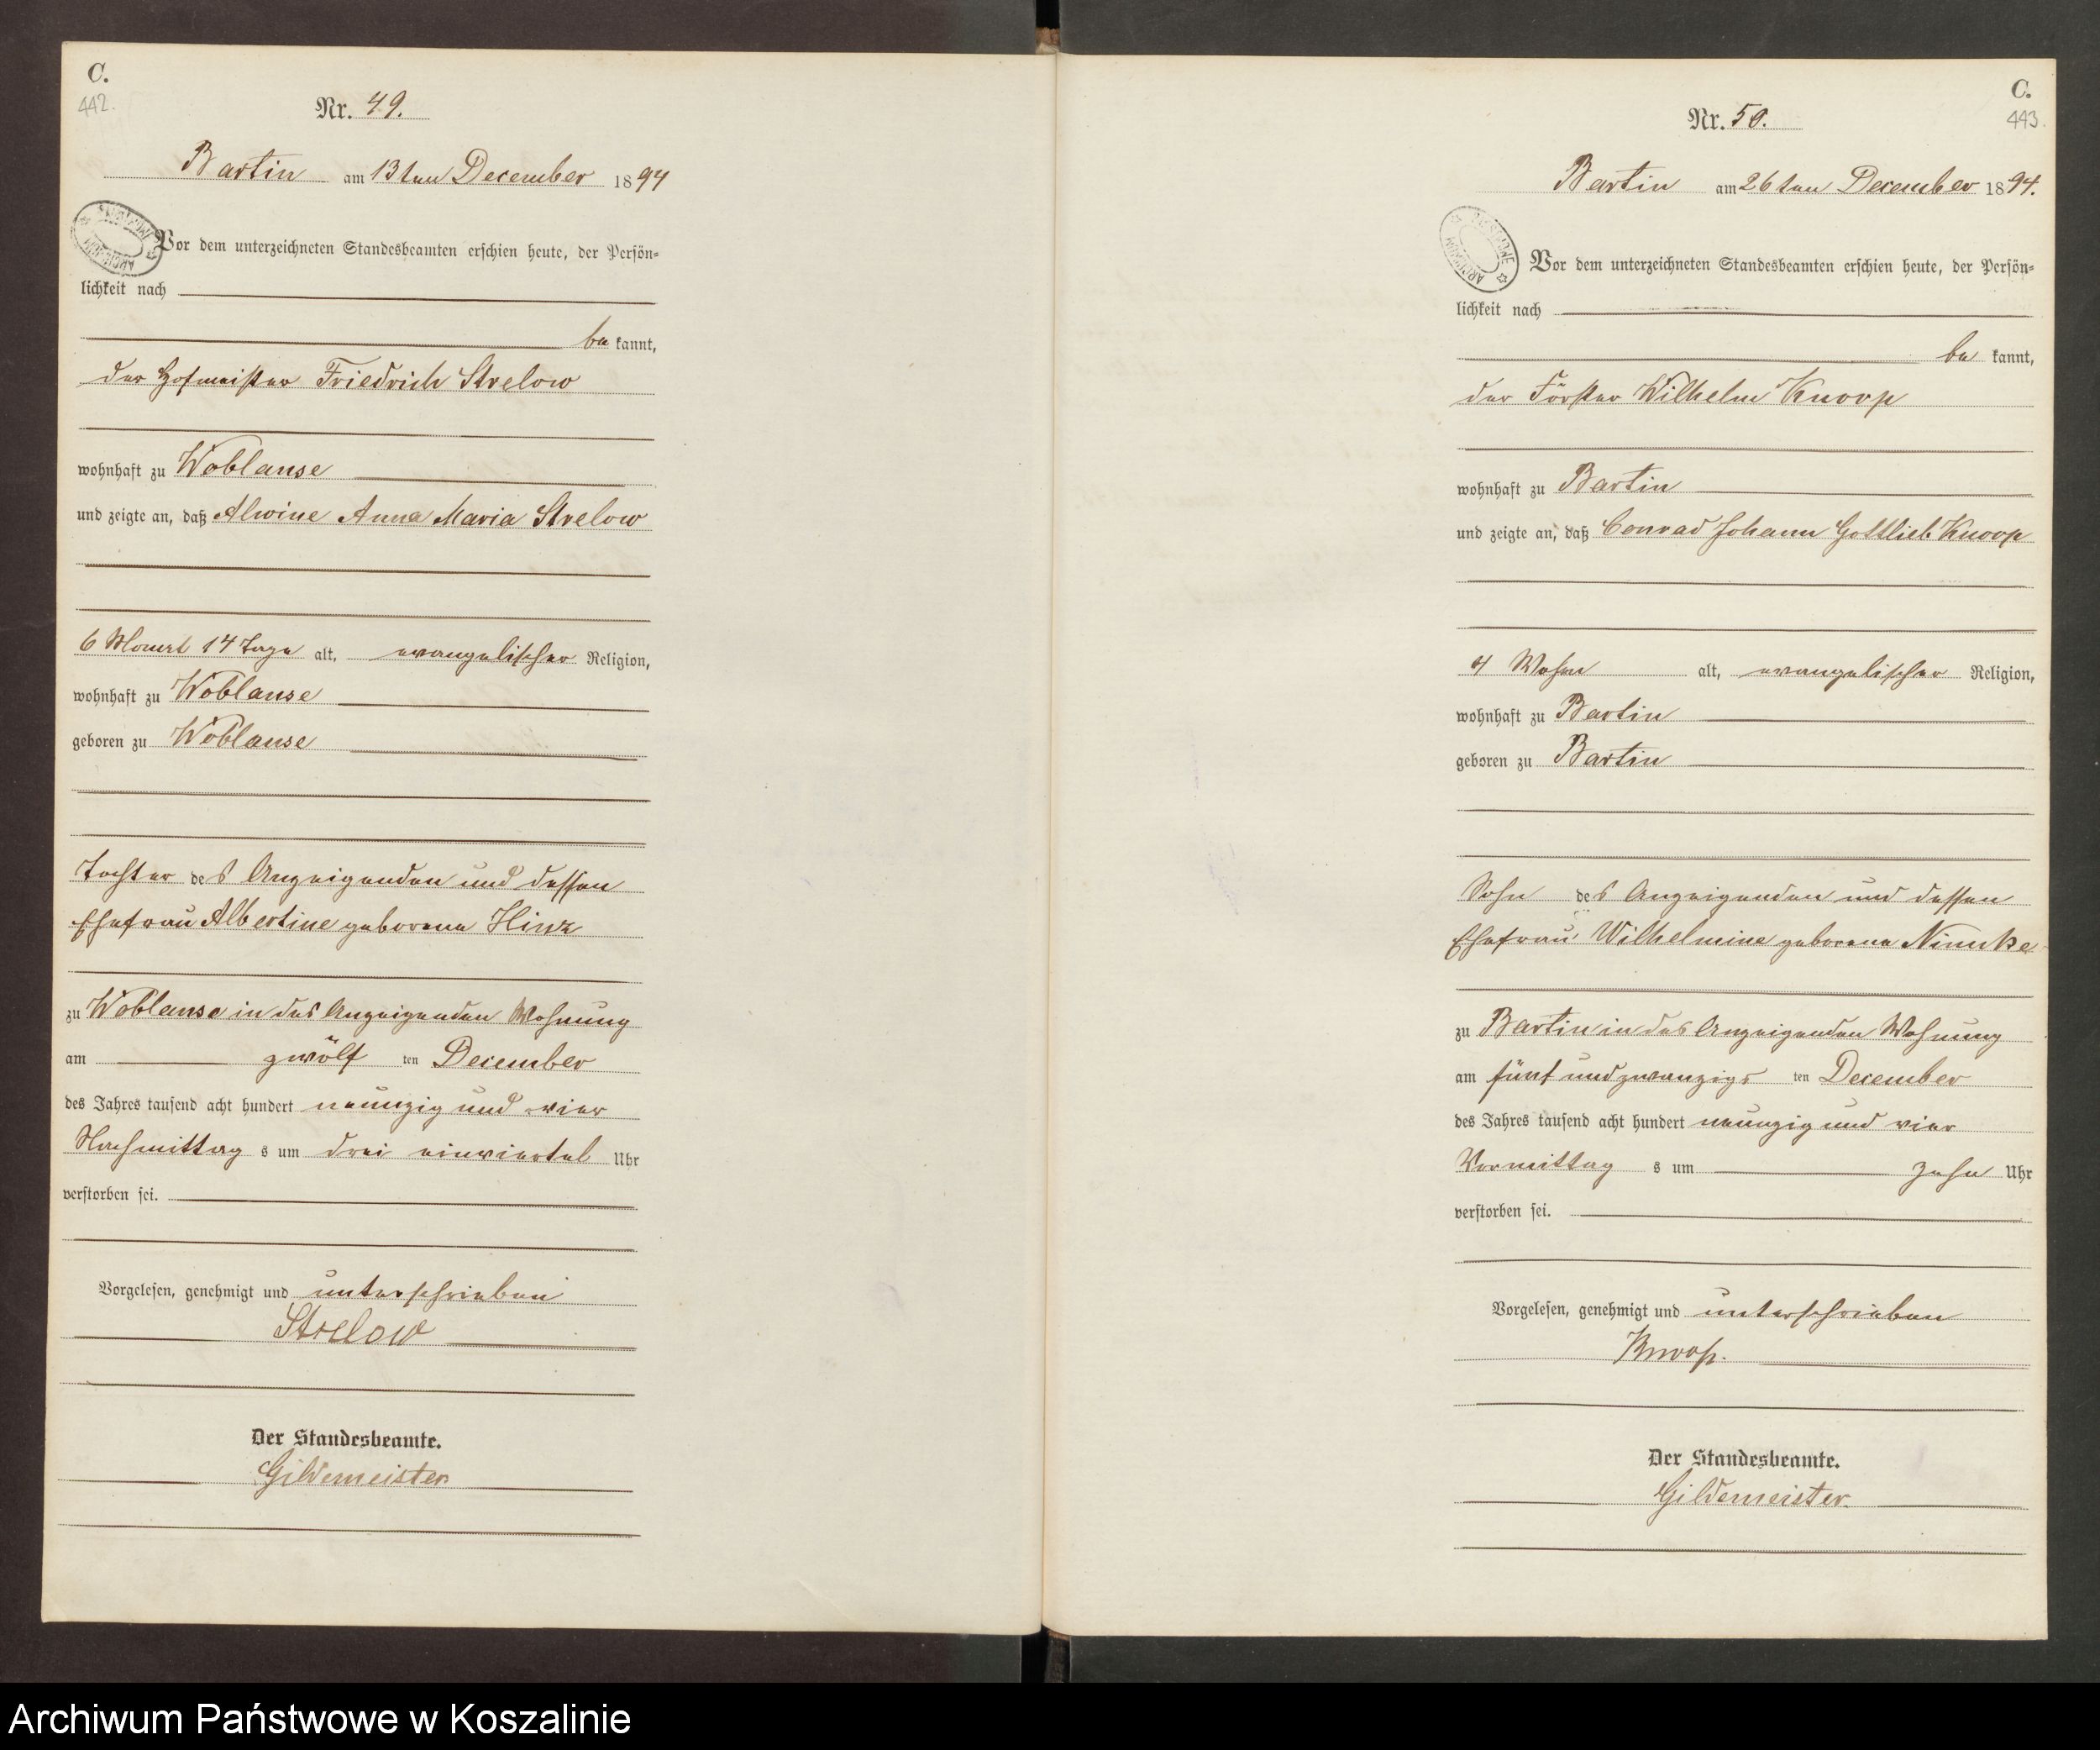 C.
442.
Nr. 49.
Bartin am 13ten December 1894
Vor dem unterzeichneten Standesbeamten erschien heute, der Persön-
lichkeit nach
be kannt,
der Hofmeister Friedrich Strelow
wohnhaft zu Woblanse
und zeigte an, daß Alwine Anna Maria Strelow
6 Monat 14 Tage alt, evangelischer Religion,
wohnhaft zu Woblanse
geboren zu Woblanse
Tochter des Anzeigenden und dessen
Ehefrau Albertine geborene Hinz
zu Woblanse in des Anzeigenden Wohnung
am zwölf ten December
des Jahres tausend acht hundert neunzig und vier
Nachmittag s um drei einviertel Uhr
verstorben sei.
Vorgelesen, genehmigt und unterschrieben
Strelow
Der Standesbeamte.
Gildemeister
C.
443.
Nr. 50.
Bartin am 26ten December 1894.
ARCHIWUM
Vor dem unterzeichneten Standesbeamten erschien heute, der Persön-
lichkeit nach
be kannt,
der Förster Wilhelm Knoop
wohnhaft zu Bartin
und zeigte an, daß Conrad Johann Gottlieb Knoop
4 Wochen alt, evangelischer Religion,
wohnhaft zu Bartin
geboren zu Bartin
Sohn des Anzeigenden und dessen
Ehefrau Wilhelmine geborene Nimke
zu Bartin in des Anzeigenden Wohnung
am fünf und zwanzigs ten December
des Jahres tausend acht hundert neunzig und vier
Vormittag s um zehn Uhr
verstorben sei.
Vorgelesen, genehmigt und unterschrieben
Knoop.
Der Standesbeamte.
Gildemeister.
Archiwum Państwowe w Koszalinie